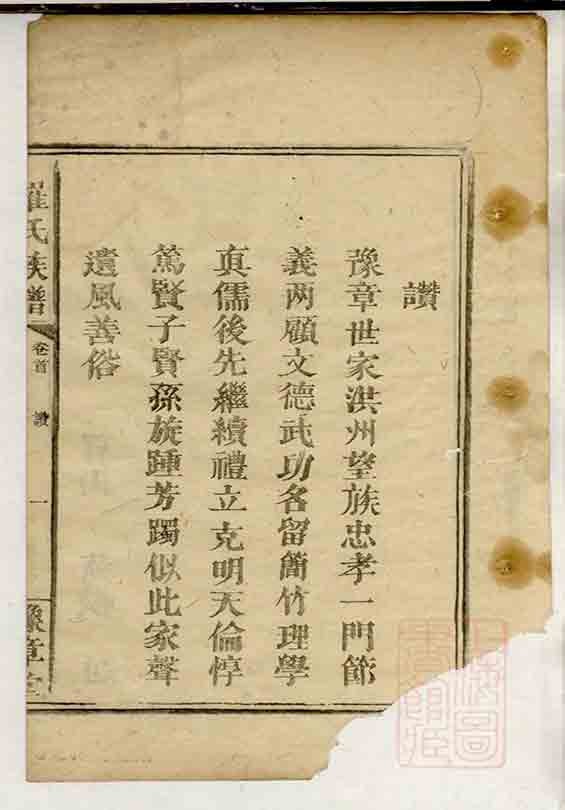 讃
豫章世家洪州望族忠孝一門節
義两顧文德武功名留簡竹理學
真儒後先繼續禮立克明天倫惇
篤賢子賢孫旋踵芳躅似此家聲
遺風善俗
羅氏族譜
卷首
讃
一
豫章堂